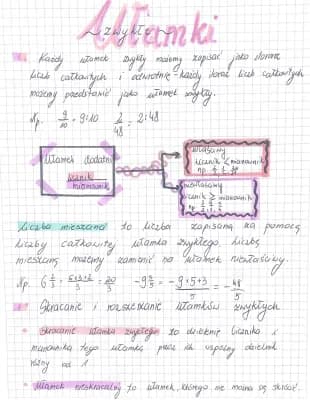 Ułamki
~zwykłe~
Każdy ułamek zwykły możemy zapisać jako iloraz
liczb całkowitych i odwrotnie - każdy iloraz liczb całkowitych
możemy przedstawić jako ułamek zwykły.
Np. 9/10 = 9:10 2/48 = 2:48
Ułamek dodatni
licznik
mianownik
właściwy
licznik < mianownik
np.
niewłaściwy
licznik ≥ mianownik
np.
Liczba mieszana to liczba zapisana za pomocą
liczby całkowitej ułamka zwykłego. Liczbę
mieszaną możemy zamienić na ułamek niewłaściwy.
Np. 6 2/3 = 6·3+2/3 = 20/3 -9 3/5 = -9·5+3/5 = -48/5
Skracanie i rozszerzanie ułamków zwykłych
Skracanie ułamka zwykłego to dzielenie licznika i
mianownika tego ułamka przez ich wspólny dzielnik
różny od 1
Ułamek nieskracalny to ułamek, którego nie można się skrócić.